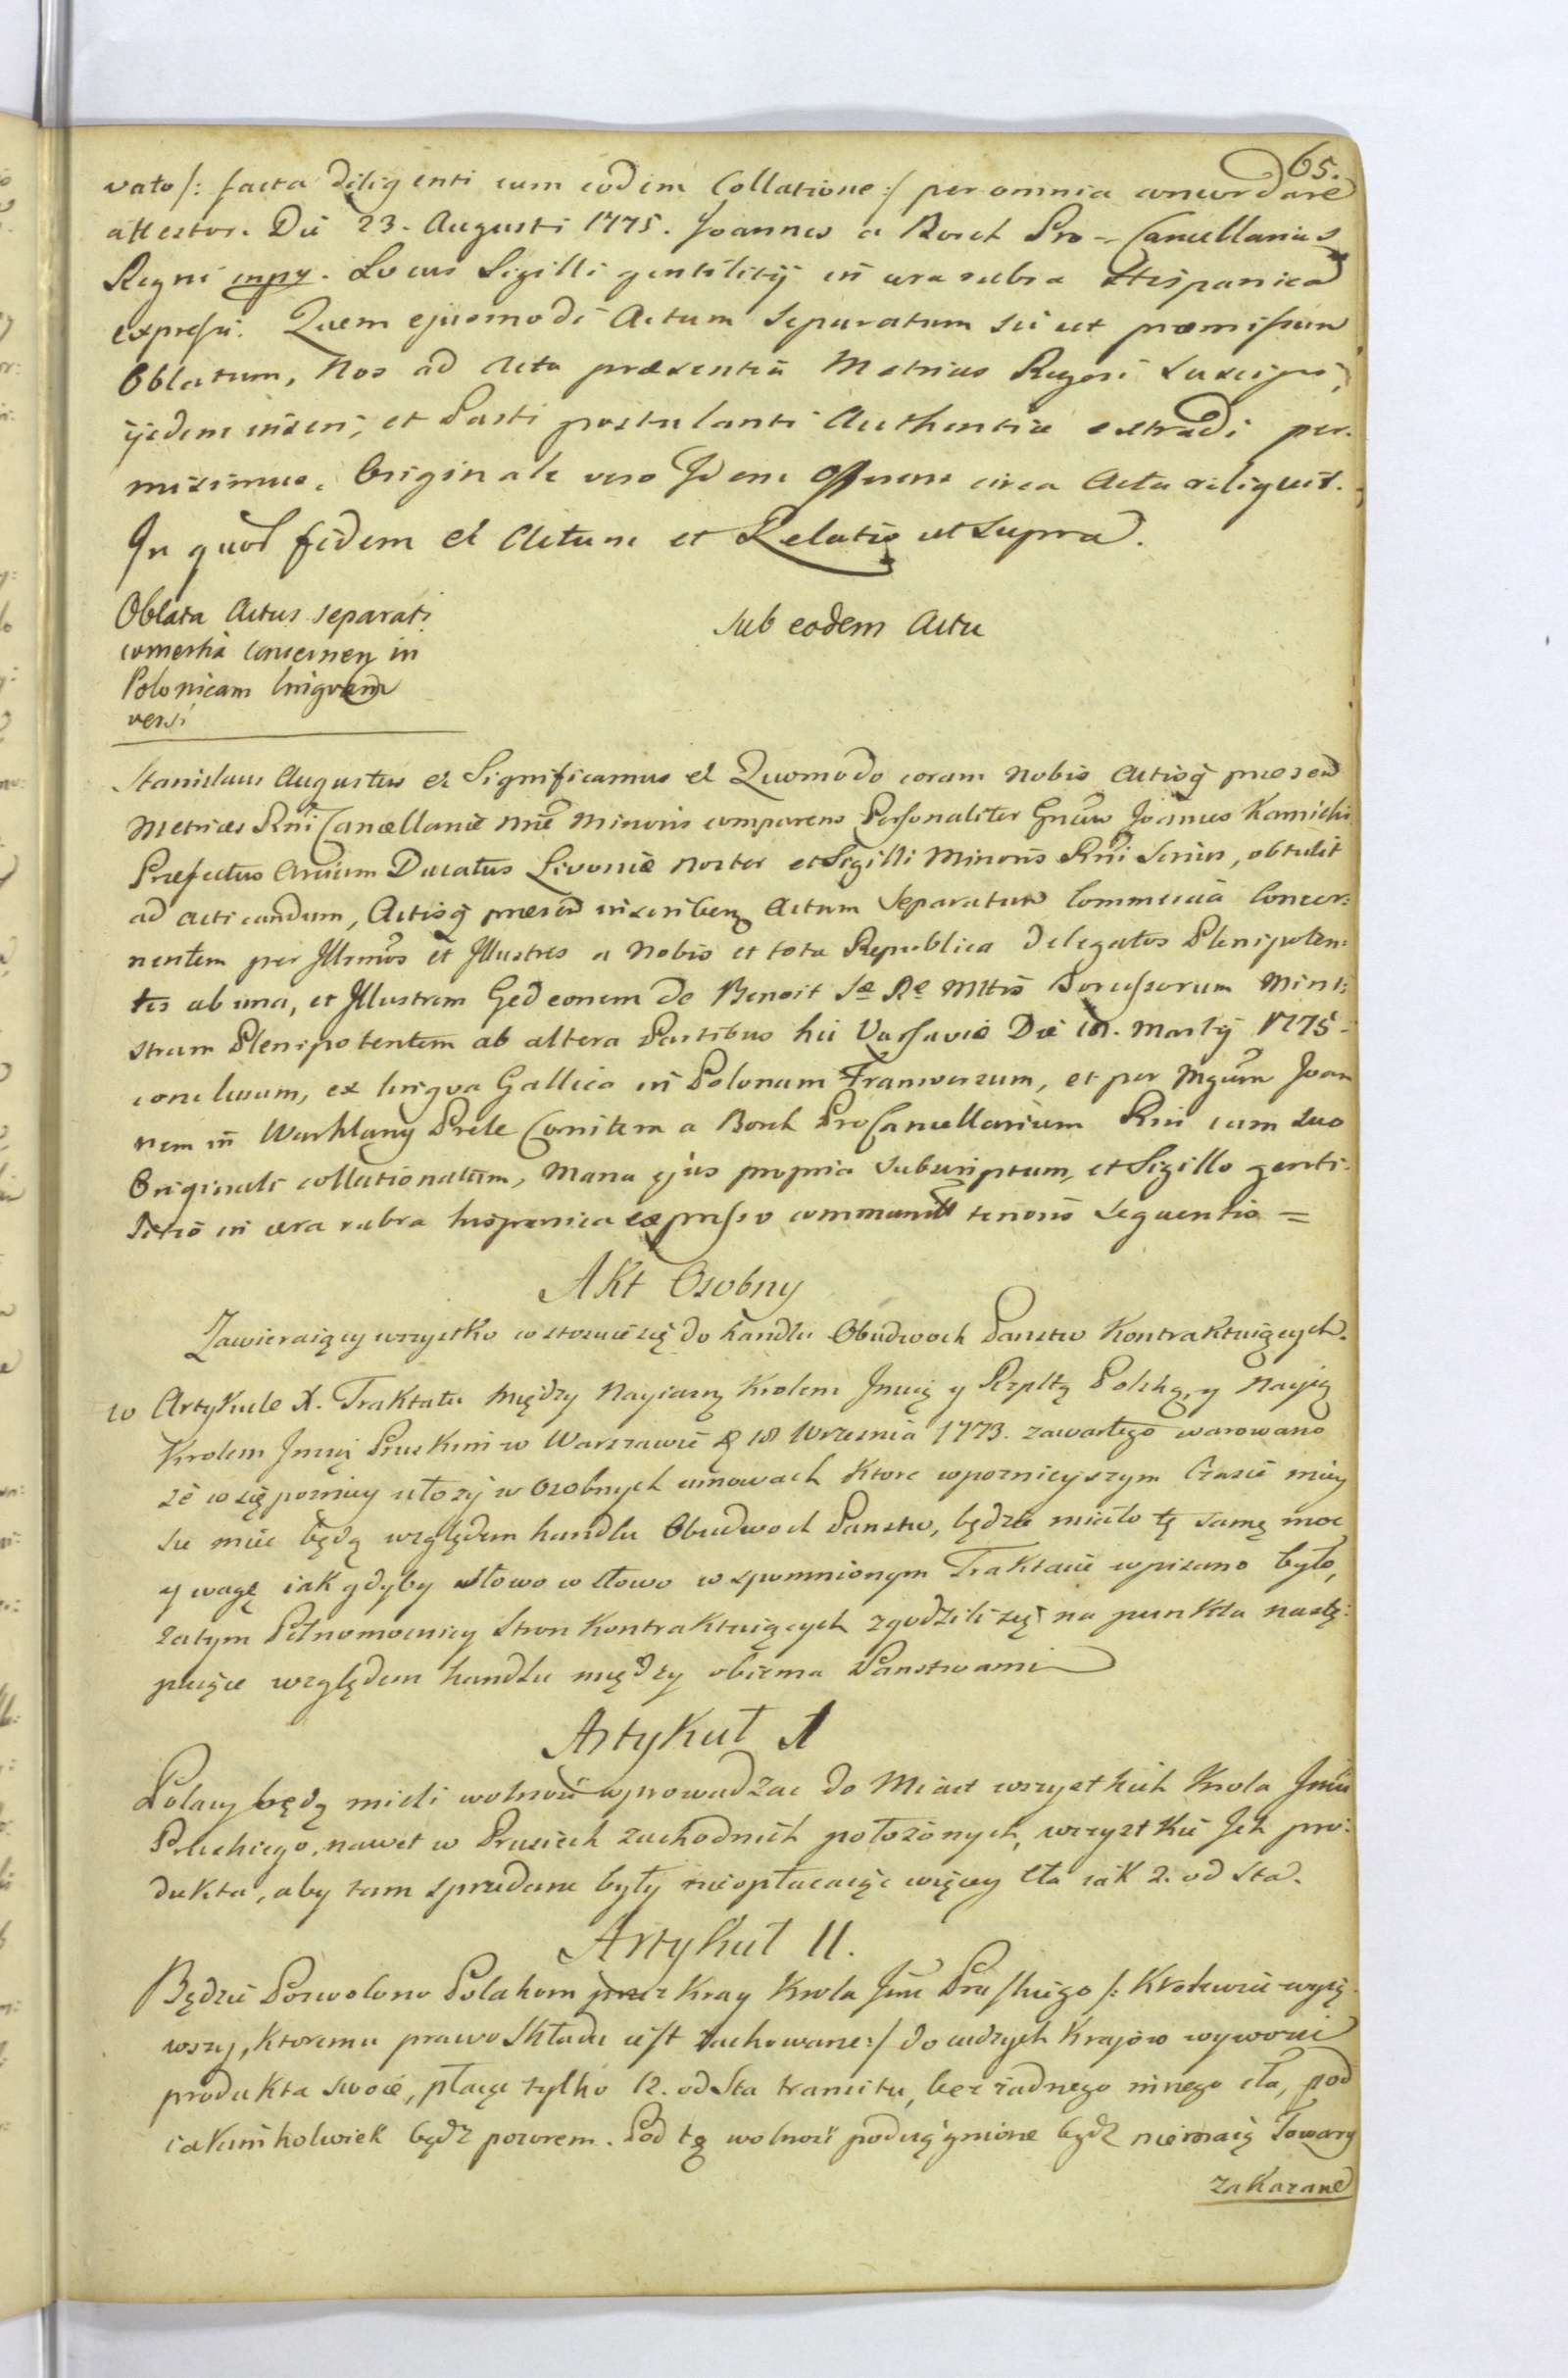 65.
vato /: facta diligenti cum eodem Collatione :/ per omnia concordare
attestor. Die 23. Augusti 1775. Joannes a Borch Pro-Cancellarius
Regni mpp. Locus Sigilli gentilitij in cera rubra Hispanica
expressi. Quem ejusmodi Actum Separatum sic ut præmissum
Oblatum, Nos ad Acta præsentia Metrices Regni suscipi,
ijsdem inseri, et Parti postulanti Authentice extradi per-
misimus. Originale vero Idem Offerens circa Acta reliquit.
In quor fidem et Actum et Relatio ut supra.
Oblata Actus separati
comertia concernen in
Polonicam linguam
versi
Sub eodem Actu
Stanislaus Augustus et Significamus et Quomodo coram Nobis Actisq præsen
Metrices Rni Cancellariæ Nræ Minoris comparens Personaliter Gnrus Joannes Kamicki
Præfectus Arcium Ducatus Livoniæ Noster et Sigilli Minoris Rni Scrius, obtulit
ad acticandum, Actisq præsen inscriben Actum Separatum Commercia Concer:
nentem per Illrmos et Illustres a Nobis et tota Republica delegatos Plenipoten:
tes ab una, et Illustrem Gedeonem de Benoit Sæ Ræ Mttis Borussorum Mini:
strum Plenipotentem ab altera Partibus hic Varsaviæ Die 18. Martij 1775
conclusum, ex lingva Gallica in Polonam Tranwersum, et per Mgcum Joan
nem in Warklany Prele Comitem a Borch ProCancellarium Rni cum suo
Originali collationatum, Manu ejus propria subscriptum, et Sigillo genti:
litio in cera rubra hispanica expresso communit tenoris sequentis =
Akt Osobny
Zawieraiący wszystko co stosuie się do handlu Obudwoch Panstw Kontraktuiących.
w Artykule X. Traktatu między Nayiasn Krolem Jmcią y Rzpltą Polską, y Nayią
Krolem Jmcią Pruskim w Warszawie 18 Wrzesnia 1773. zawartego warowano
że co się pozniey ułoży w Osobnych umowach Ktore w poznieyszym Czasie miey
sce mieć będą względem handlu Obudwoch Panstw, będzie miało tę samę moc
y wagę iak gdyby słowo w słowo w spomnionym Traktacie wpisano było,
zatym Pełnomocnicy Stron Kontraktuiących zgodzili się na punkta nastę:
puiące względem handlu między obiema Panstwami
Artykuł I
Polacy będą mieli wolność wprowadzac do Miast wszystkich Krola Jmci
Pruskiego, nawet w Prusiech zachodnich położonych, wszystkie Ich pro:
dukta, aby tam sprzedane były nieopłacaiąc więcey Cła iak 2. od Sta.
Artykuł II.
Będzie Pozwolono Polakom przez Kray Krola Jmci Pruskiego /: Krolewiec wyią
wszy, Ktoremu prawo Składu iest zachowane :/ do cudzych Kraiow wywozić
produkta swoie, płacąc tylko 12. od Sta tranzitu, bez żadnego innego cła, pod
iakimkolwiek bądź pozorem. Pod tę wolność podciągnione bydź niemaią Towary
zakazane